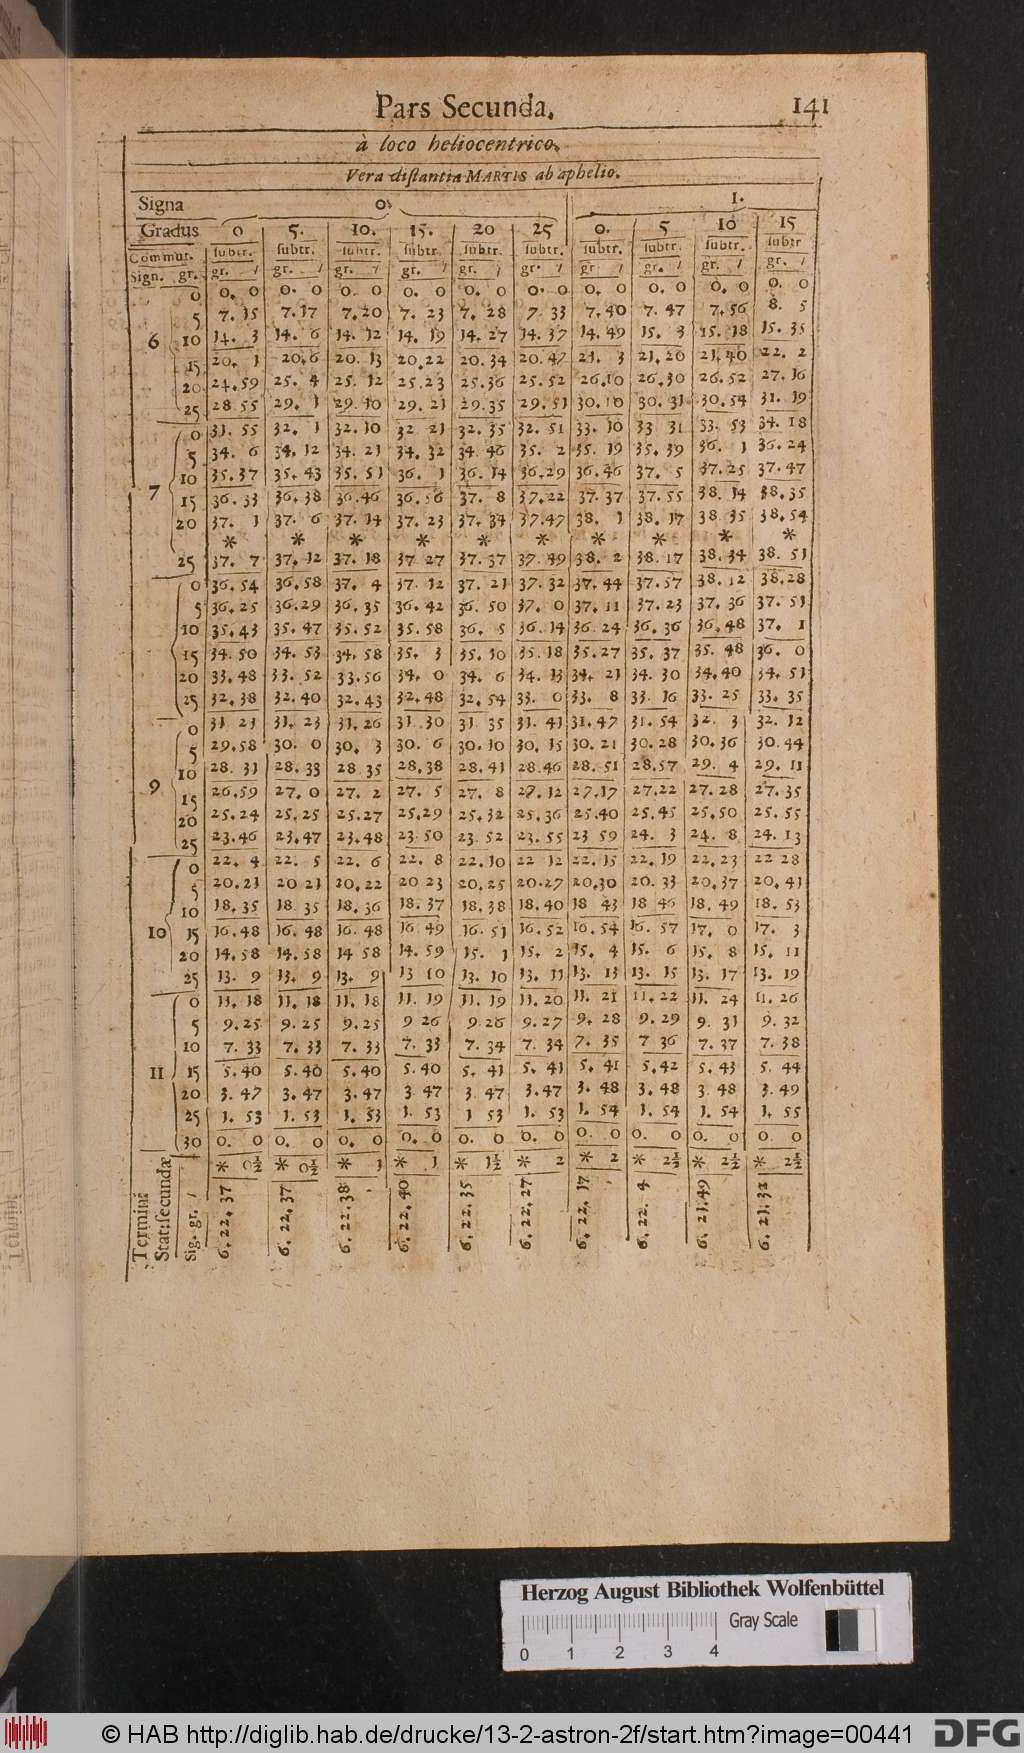 Pars Secunda. 141
à loco heliocentrico.
Vera distantia MARTIS ab aphelio.
Signa 0. 1.
Gradus 0 5. 10. 15. 20 25 0. 5 10 15
Commut. subtr. subtr. subtr. subtr. subtr. subtr. subtr. subtr. subtr. subtr
Sign. gr. gr. ′ gr. ′ gr. ′ gr. ′ gr. ′ gr. ′ gr. ′ gr. ′ gr. ′ gr. ′
0 0. 0 0. 0 0. 0 0. 0 0. 0 0. 0 0. 0 0. 0 0. 0 0. 0
5 7. 15 7. 17 7. 20 7. 23 7. 28 7 33 7. 40 7. 47 7. 56 8. 5
6 10 14. 3 14. 6 14. 12 14. 19 14. 27 14. 37 14. 49 15. 3 15. 18 15. 35
15 20. 1 20. 6 20. 13 20. 22 20. 34 20. 47 21. 3 21. 20 21. 40 22. 2
20 24. 59 25. 4 25. 12 25. 23 25. 36 25. 52 26. 10 26. 30 26. 52 27. 16
25 28 55 29. 1 29. 10 29. 21 29. 35 29. 51 30. 10 30. 31 30. 54 31. 19
0 31. 55 32. 1 32. 10 32 21 32. 35 32. 51 33. 10 33 31 33. 53 34. 18
5 34. 6 34. 12 34. 21 34. 32 34. 46 35. 2 35. 19 35. 39 36. 1 36. 24
10 35. 37 35. 43 35. 51 36. 1 36. 14 36. 29 36. 46 37. 5 37. 25 37. 47
7 15 36. 33 36. 38 36. 46 36. 56 37. 8 37. 22 37. 37 37. 55 38. 14 38. 35
20 37. 1 37. 6 37. 14 37. 23 37. 34 37. 47 38. 1 38. 17 38 35 38. 54
* * * * * * * * * *
25 37. 7 37. 12 37. 18 37 27 37. 37 37. 49 38. 2 38. 17 38. 34 38. 51
0 36. 54 36. 58 37. 4 37. 12 37. 21 37. 32 37. 44 37. 57 38. 12 38. 28
5 36. 25 36. 29 36. 35 36. 42 36. 50 37. 0 37. 11 37. 23 37. 36 37. 51
10 35. 43 35. 47 35. 52 35. 58 36. 5 36. 14 36 24 36. 36 36. 48 37. 1
15 34. 50 34. 53 34. 58 35. 3 35. 10 35. 18 35. 27 35. 37 35. 48 36. 0
20 33. 48 33. 52 33. 56 34. 0 34. 6 34. 13 34. 21 34. 30 34. 40 34. 51
25 32. 38 32. 40 32. 43 32. 48 32. 54 33. 0 33. 8 33. 16 33. 25 33. 35
0 31 21 31. 23 31. 26 31 30 31 35 31. 41 31. 47 31. 54 32. 3 32. 12
5 29. 58 30. 0 30. 3 30. 6 30. 10 30. 15 30. 21 30. 28 30. 36 30. 44
10 28. 31 28. 33 28 35 28. 38 28. 41 28. 46 28. 51 28. 57 29. 4 29. 11
9 15 26. 59 27. 0 27. 2 27. 5 27. 8 27. 12 27. 17 27. 22 27. 28 27. 35
20 25. 24 25. 25 25. 27 25. 29 25. 32 25. 36 25. 40 25. 45 25. 50 25. 55
25 23. 46 23. 47 23. 48 23 50 23. 52 23. 55 23 59 24. 3 24. 8 24. 13
0 22. 4 22. 5 22. 6 22. 8 22. 10 22 12 22. 15 22. 19 22. 23 22 28
5 20. 21 20 21 20. 22 20 23 20. 25 20. 27 20. 30 20. 33 20. 37 20. 41
10 18. 35 18 35 18. 36 18. 37 18. 38 18. 40 18 43 18 46 18. 49 18. 53
10 15 16. 48 16. 48 16. 48 16 49 16. 51 16. 52 16. 54 16. 57 17. 0 17. 3
20 14. 58 14. 58 14 58 14. 59 15. 1 15. 2 15. 4 15. 6 15. 8 15. 11
25 13. 9 13. 9 13. 9 13 10 13. 10 13. 11 13. 13 13. 15 13. 17 13. 19
0 11. 18 11. 18 11. 18 11. 19 11. 19 11. 20 11. 21 11. 22 11. 24 11. 26
5 9. 25 9. 25 9. 25 9 26 9 26 9. 27 9. 28 9. 29 9. 31 9. 32
10 7. 33 7. 33 7. 33 7. 33 7. 34 7. 34 7. 35 7 36 7. 37 7. 38
11 15 5. 40 5. 40 5. 40 5. 40 5. 41 5. 41 5. 41 5. 42 5. 43 5. 44
20 3. 47 3. 47 3. 47 3. 47 3. 47 3. 47 3. 48 3. 48 3. 48 3. 49
25 1. 53 1. 53 1. 53 1. 53 1 53 1. 53 1. 54 1. 54 1. 54 1. 55
30 0. 0 0. 0 0. 0 0. 0 0. 0 0. 0 0. 0 0. 0 0. 0 0. 0
* 0½ * 0½ * 1 * 1 * 1½ * 2 * 2 * 2½ * 2½ * 2½
Termini
Stat: secundæ
Sig. gr. ′ 6. 22. 37 6. 22. 37 6. 22. 38 6. 22. 40 6. 22. 35 6. 22. 27 6. 22. 17 6. 22. 4 6. 21. 49 6. 21. 32
Herzog August Bibliothek Wolfenbüttel
Gray Scale
0 1 2 3 4
© HAB http://diglib.hab.de/drucke/13-2-astron-2f/start.htm?image=00441 DFG